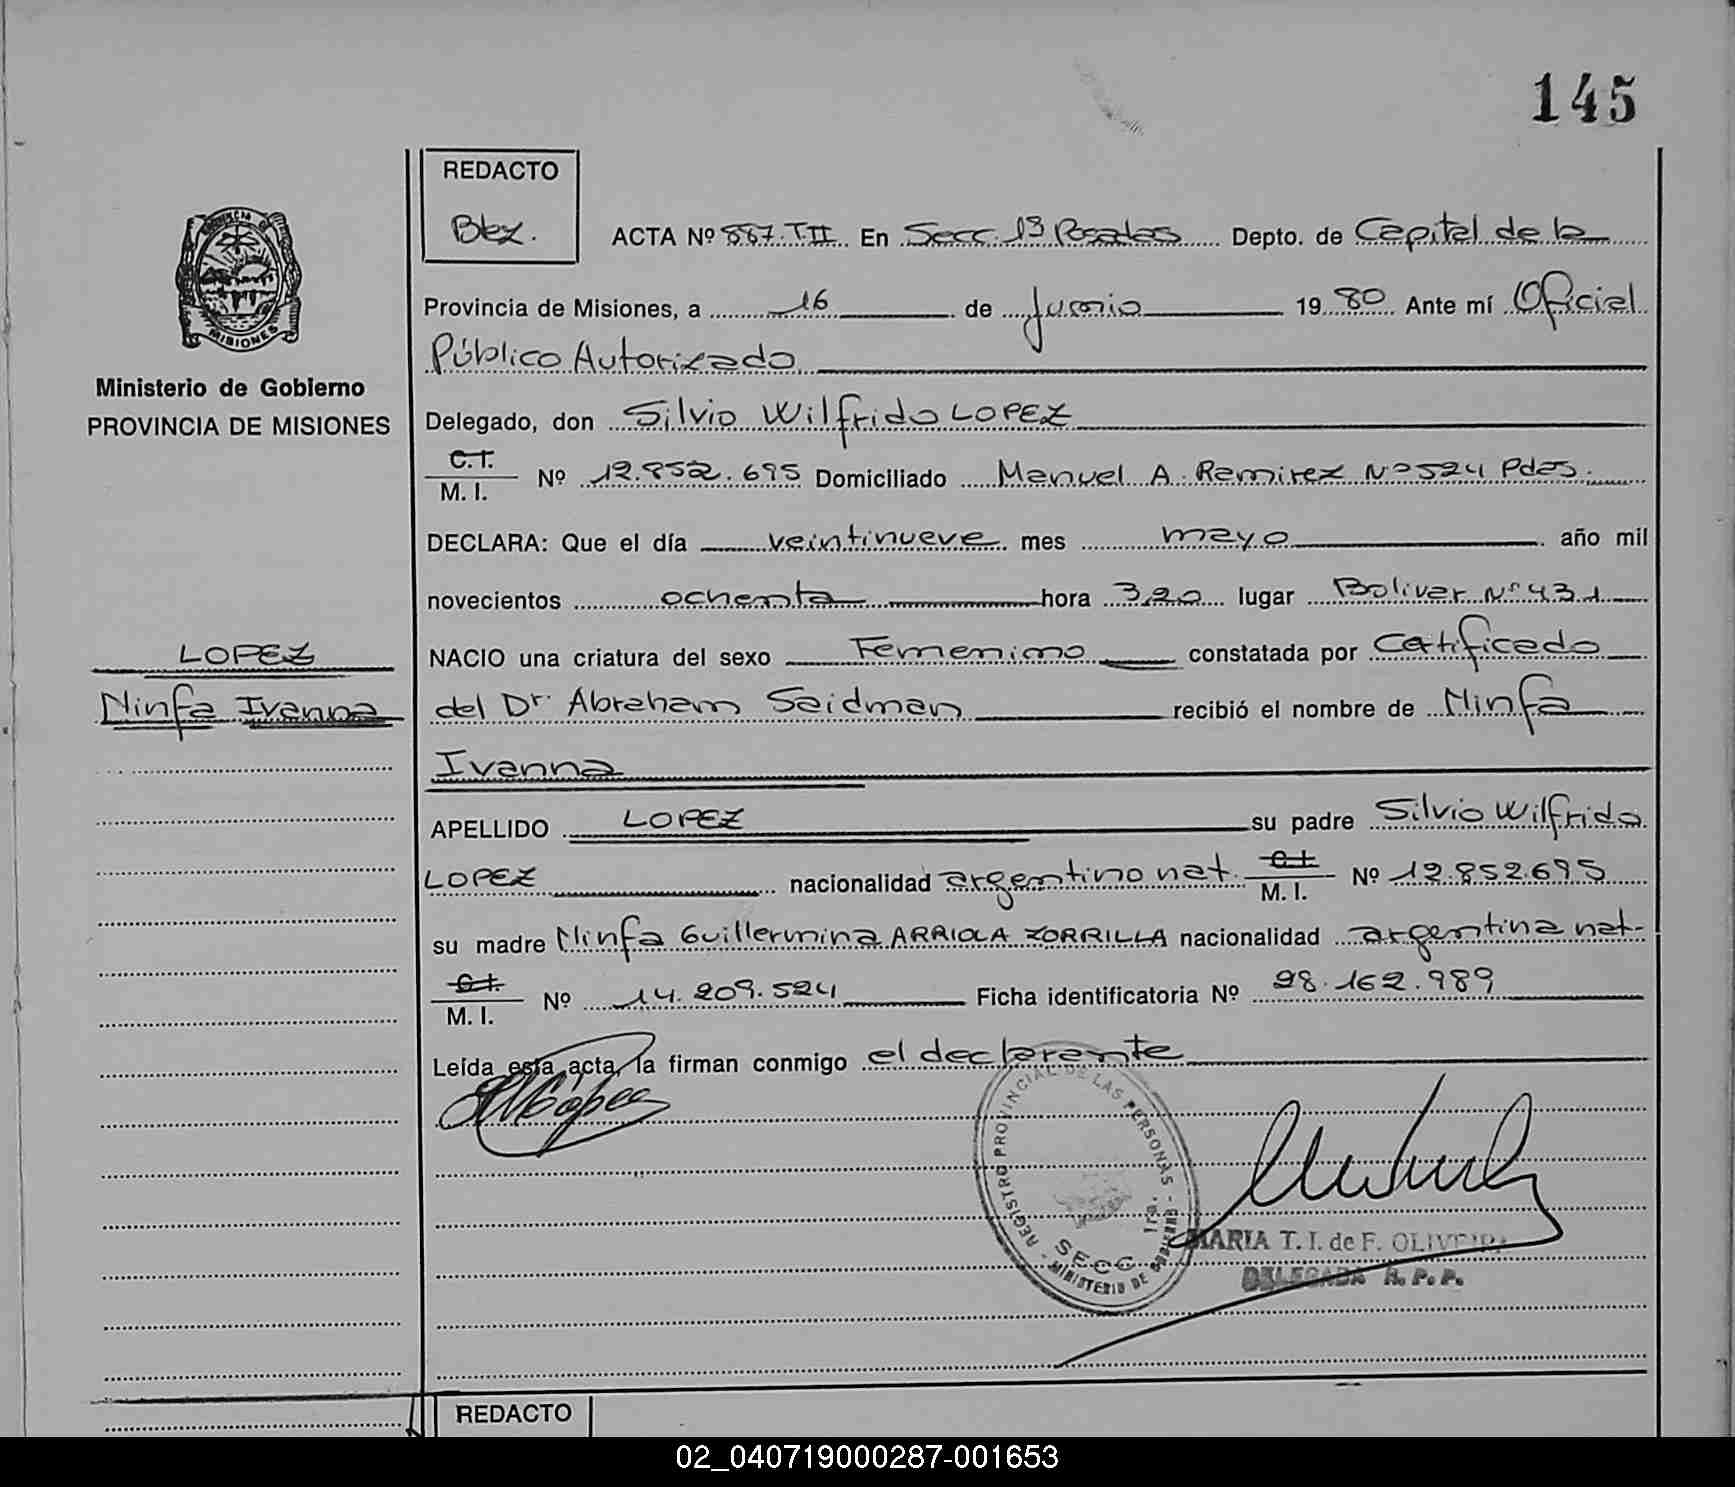 145
REDACTO
Blez.
ACTA Nº 867.T.II. En Secc. 1ª Posadas Depto. de Capital de la
Provincia de Misiones, a 16 de Junio 1980 Ante mí Oficial
Público Autorizado
Ministerio de Gobierno
PROVINCIA DE MISIONES
Delegado, don Silvio Wilfrido LOPEZ
C.I.
M. I. Nº 12.852.695 Domiciliado Manuel A. Ramirez Nº 524 Pdas.
DECLARA: Que el día veintinueve mes mayo año mil
novecientos ochenta hora 3,20 lugar Bolivar Nº 431
LOPEZ
Ninfa Ivanna
NACIO una criatura del sexo Femenino constatada por Certificado
del Dr. Abraham Saidman recibió el nombre de Ninfa
Ivanna
APELLIDO LOPEZ su padre Silvio Wilfrido
LOPEZ nacionalidad argentino nat. C.I. M. I. Nº 12.852.695
su madre Ninfa Guillermina ARRIOLA ZORRILLA nacionalidad argentina nat.
C.I.
M. I. Nº 14.209.524 Ficha identificatoria Nº 28.162.989
Leída esta acta, la firman conmigo el declarante
REGISTRO PROVINCIAL DE LAS PERSONAS
SECC. 1ra.
MINISTERIO DE GOBIERNO
MARIA T. I. de F. OLIVEIRA
DELEGADA R. P. P.
REDACTO
02_040719000287-001653